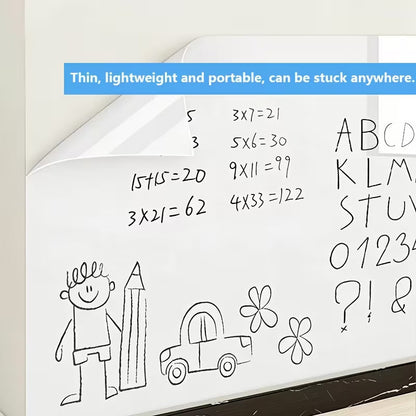 Thin, lightweight and portable, can be stuck anywhere.
5
3
15+15=20
3×21=62
3×7=21
5×6=30
9×11=99
4×33=122
ABCD
KLM
STU
01234
?!&